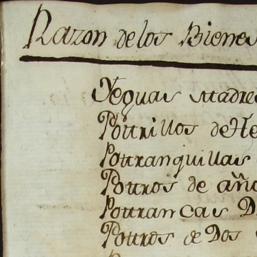 Razon de los Bienes
Yeguas Madres
Potrillos de He
Potranquillas
Potros de año
Potrancas D
Potros de Dos